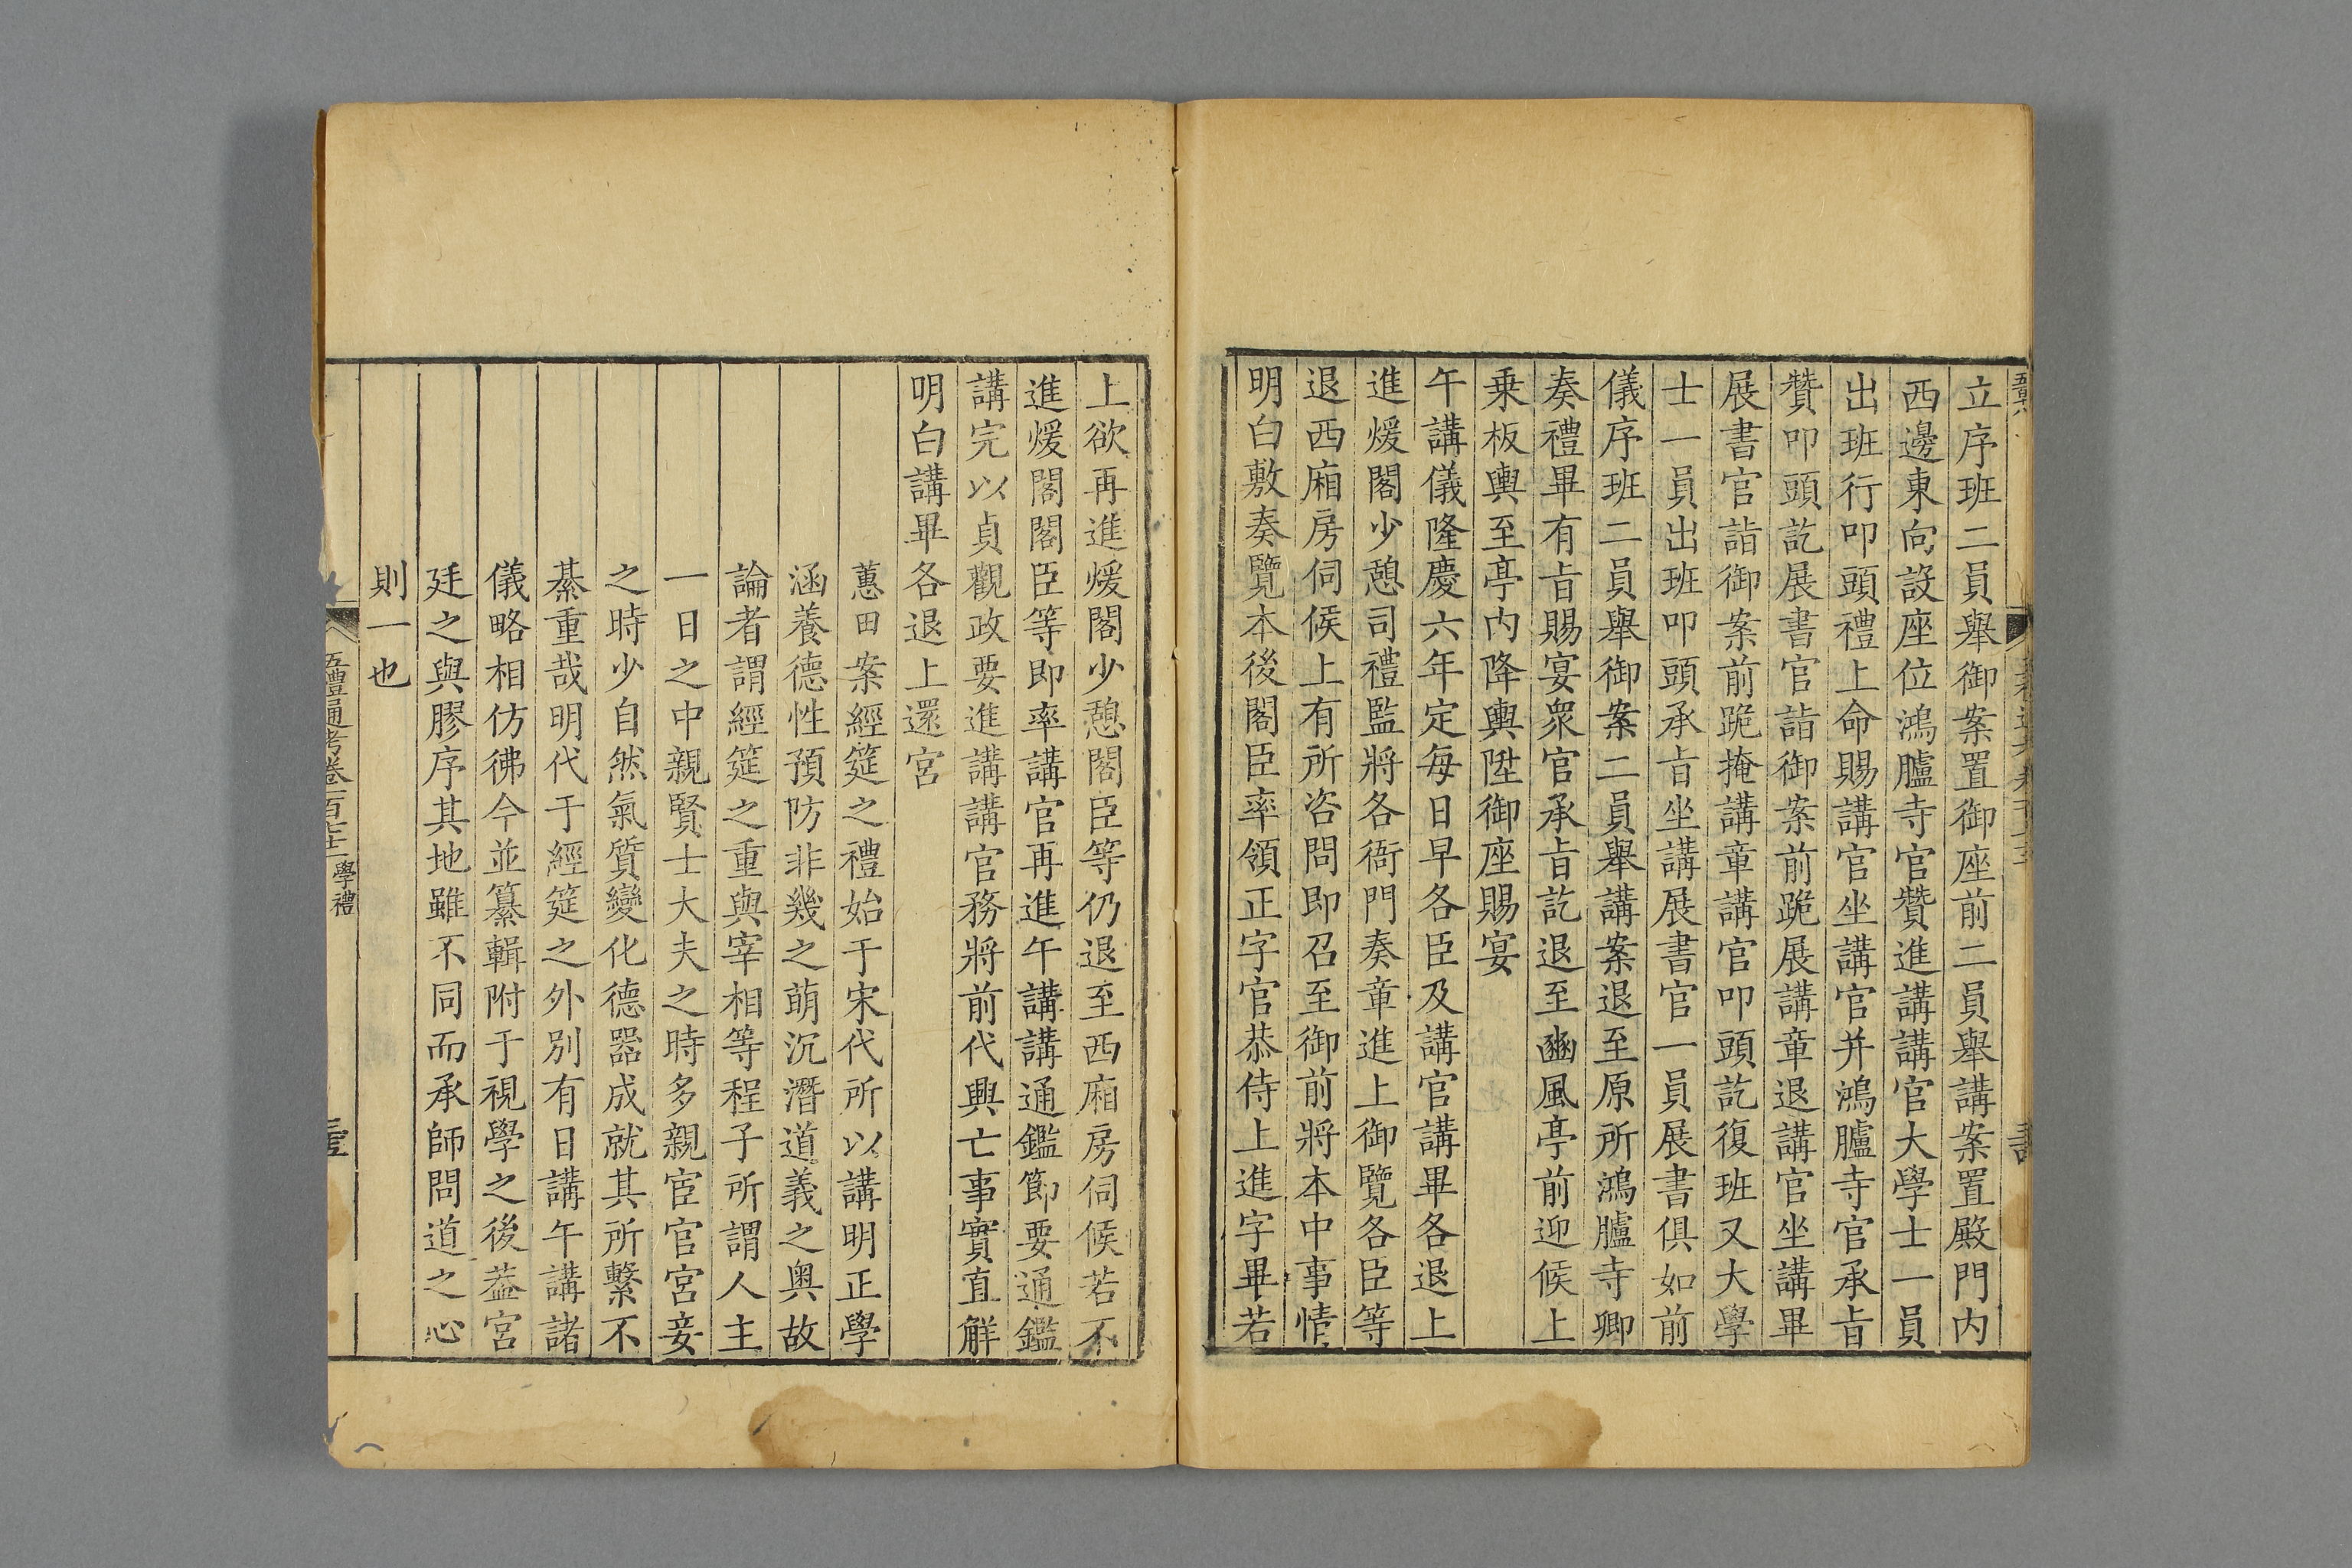 立序班二員舉御案置御座前二員舉講案置殿門內
西邊東向設座位鴻臚寺官贊進講講官大學士一員
出班行叩頭禮上命賜講官坐講官并鴻臚寺官承旨
贊叩頭訖展書官詣御案前跪展講章退講官坐講畢
展書官詣御案前跪掩講章講官叩頭訖復班又大學
士一員出班叩頭承旨坐講展書官一員展書俱如前
儀序班二員舉御案二員舉講案退至原所鴻臚寺卿
奏禮畢有旨賜宴眾官承旨訖退至豳風亭前迎候上
乗板輿至亭內降輿陞御座賜宴
午講儀隆慶六年定每日早各臣及講官講畢各退上
進煖閣少憩司禮監將各衙門奏章進上御覽各臣等
退西廂房伺候上有所咨問即召至御前將本中事情
明白敷奏覽本後閣臣率領正字官恭侍上進字畢若
上欲再進煖閣少憩閣臣等仍退至西廂房伺候若不
進煖閣閣臣等即率講官再進午講講通鑑節要通鑑
講完以貞觀政要進講講官務將前代興亡事實直解
明白講畢各退上還宮
蕙田案經筵之禮始于宋代所以講明正學
涵養德性預防非幾之萌沉潛道義之奧故
論者謂經筵之重與宰相等程子所謂人主
一日之中親賢士大夫之時多親宦官宮妾
之時少自然氣質變化德器成就其所繫不
綦重哉明代于經筵之外別有日講午講諸
儀略相仿彿今並纂輯附于視學之後葢宮
廷之與膠序其地雖不同而承師問道之心
則一也
五禮通考卷一百七十二 學禮